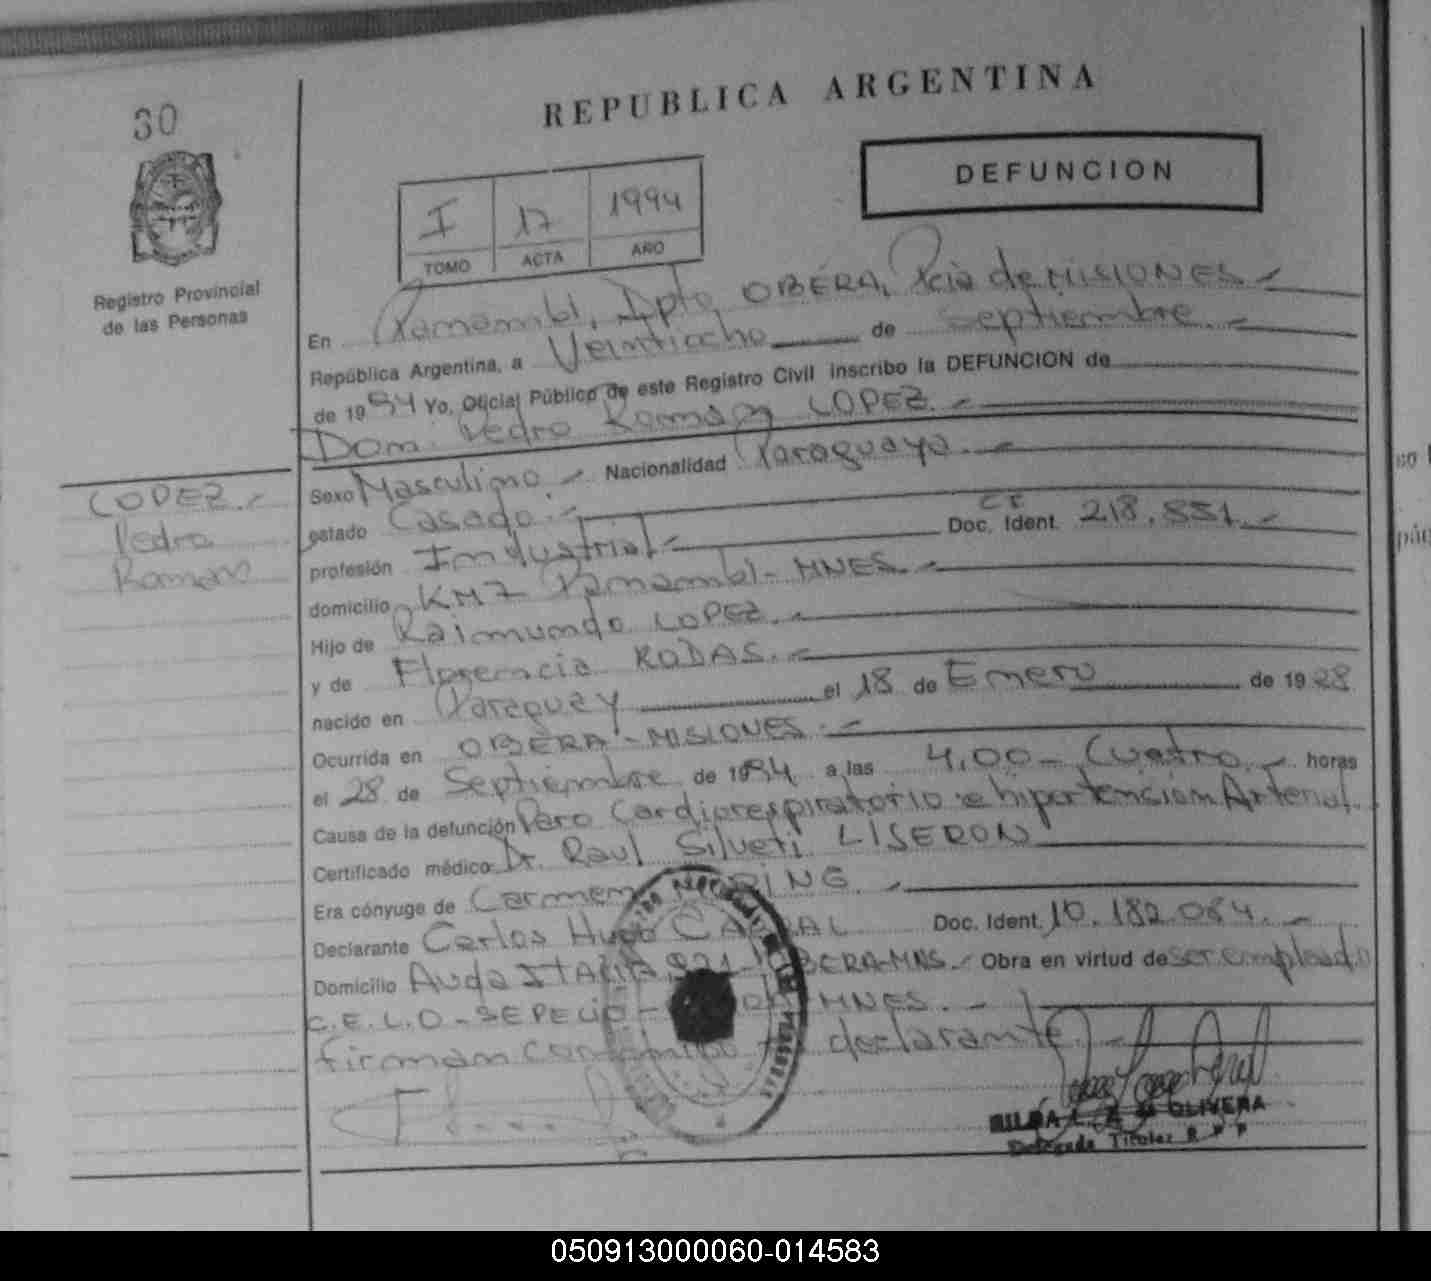 30
REPUBLICA ARGENTINA
DEFUNCION
I 17 1994
TOMO ACTA AÑO
Registro Provincial
de las Personas
En Panambí, Dpto OBERA, Pcia de MISIONES
República Argentina, a Veintiocho de Septiembre
de 1994 Yo, Oficial Público de este Registro Civil inscribo la DEFUNCION de
Don: Pedro Roman LOPEZ
LOPEZ
Pedro
Roman
Sexo Masculino Nacionalidad Paraguaya
estado Casado
CI
profesión Industrial Doc. Ident. 218.551
domicilio KM 7 Panambí - MNES
Hijo de Raimundo LOPEZ
y de Florencia RODAS
nacido en Paraguay el 18 de Enero de 1928
Ocurrida en OBERA - MISIONES
el 28 de Septiembre de 1994 a las 4,00 - Cuatro horas
Causa de la defunción Paro Cardiorespiratorio e hipertensión Arterial
Certificado médico: Dr. Raul Silveti LISERON
Era cónyuge de Carmen
Declarante Carlos Hugo Doc. Ident. 10.182.064
Domicilio Avda ITALIA 921 - OBERA-MNS. Obra en virtud de ser empleado
C.E.L.O - SEPELIO - MNES
firman declarante
OLIVERA
Delegada Titular R P P
050913000060-014583